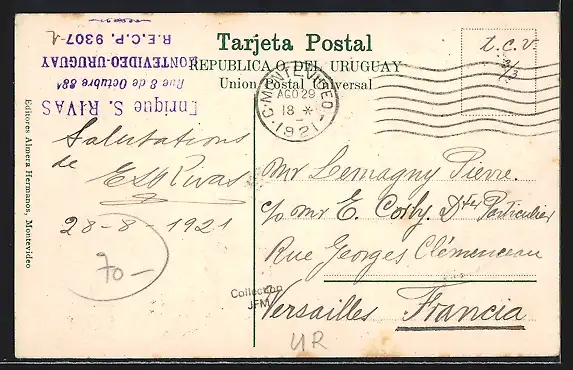 Tarjeta Postal
REPUBLICA O. DEL URUGUAY
Union Postal Universal
Enrique S. RIVAS
Rue 8 de Octubre 88A
MONTEVIDEO-URUGUAY
R.E.C.P. 9307-
t.c.v.
3/3
C. MONTEVIDEO
AGO 29
18 *
1921
Salutations
de
ESRivas
28-8-1921
70-
Mr Lemagny Pierre.
c/o Mr E. Corby. Dter Particulier
Rue Georges Clémenceau
Versailles Francia
Collection
JFM
UR
Editores Almera Hermanos, Montevideo